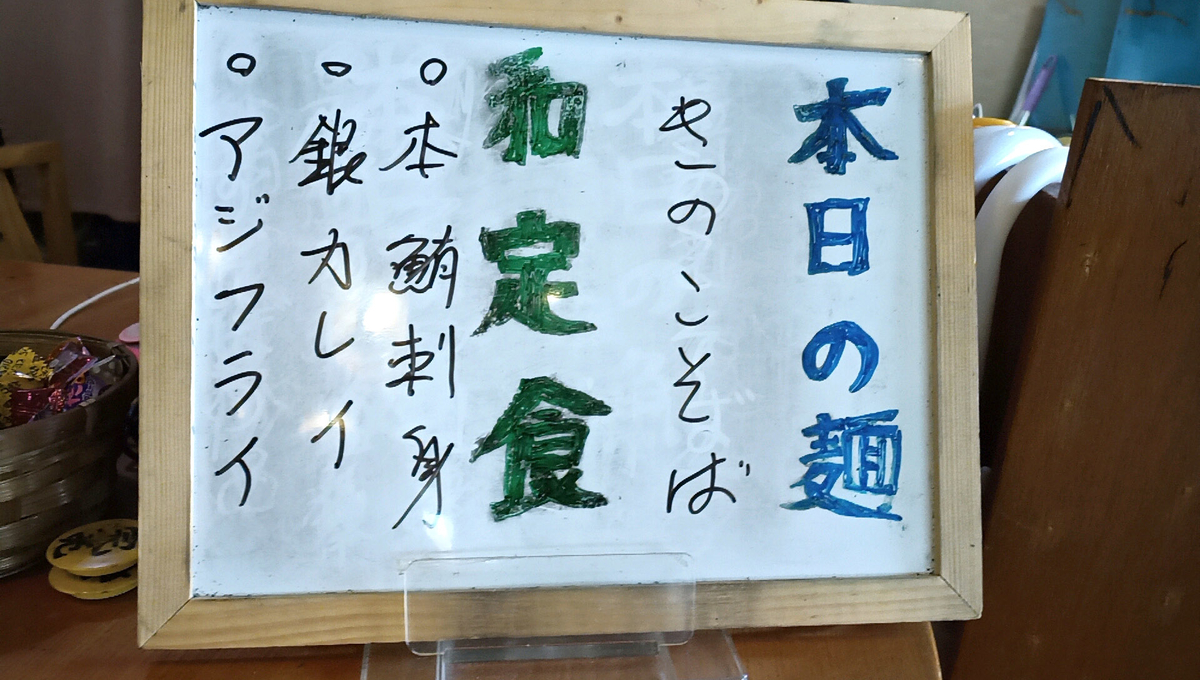 本日の麺
きのこそば
和定食
○本鮪刺身
○銀カレイ
○アジフライ